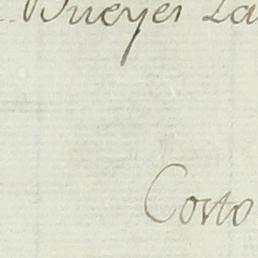 Bueyes La
Costo